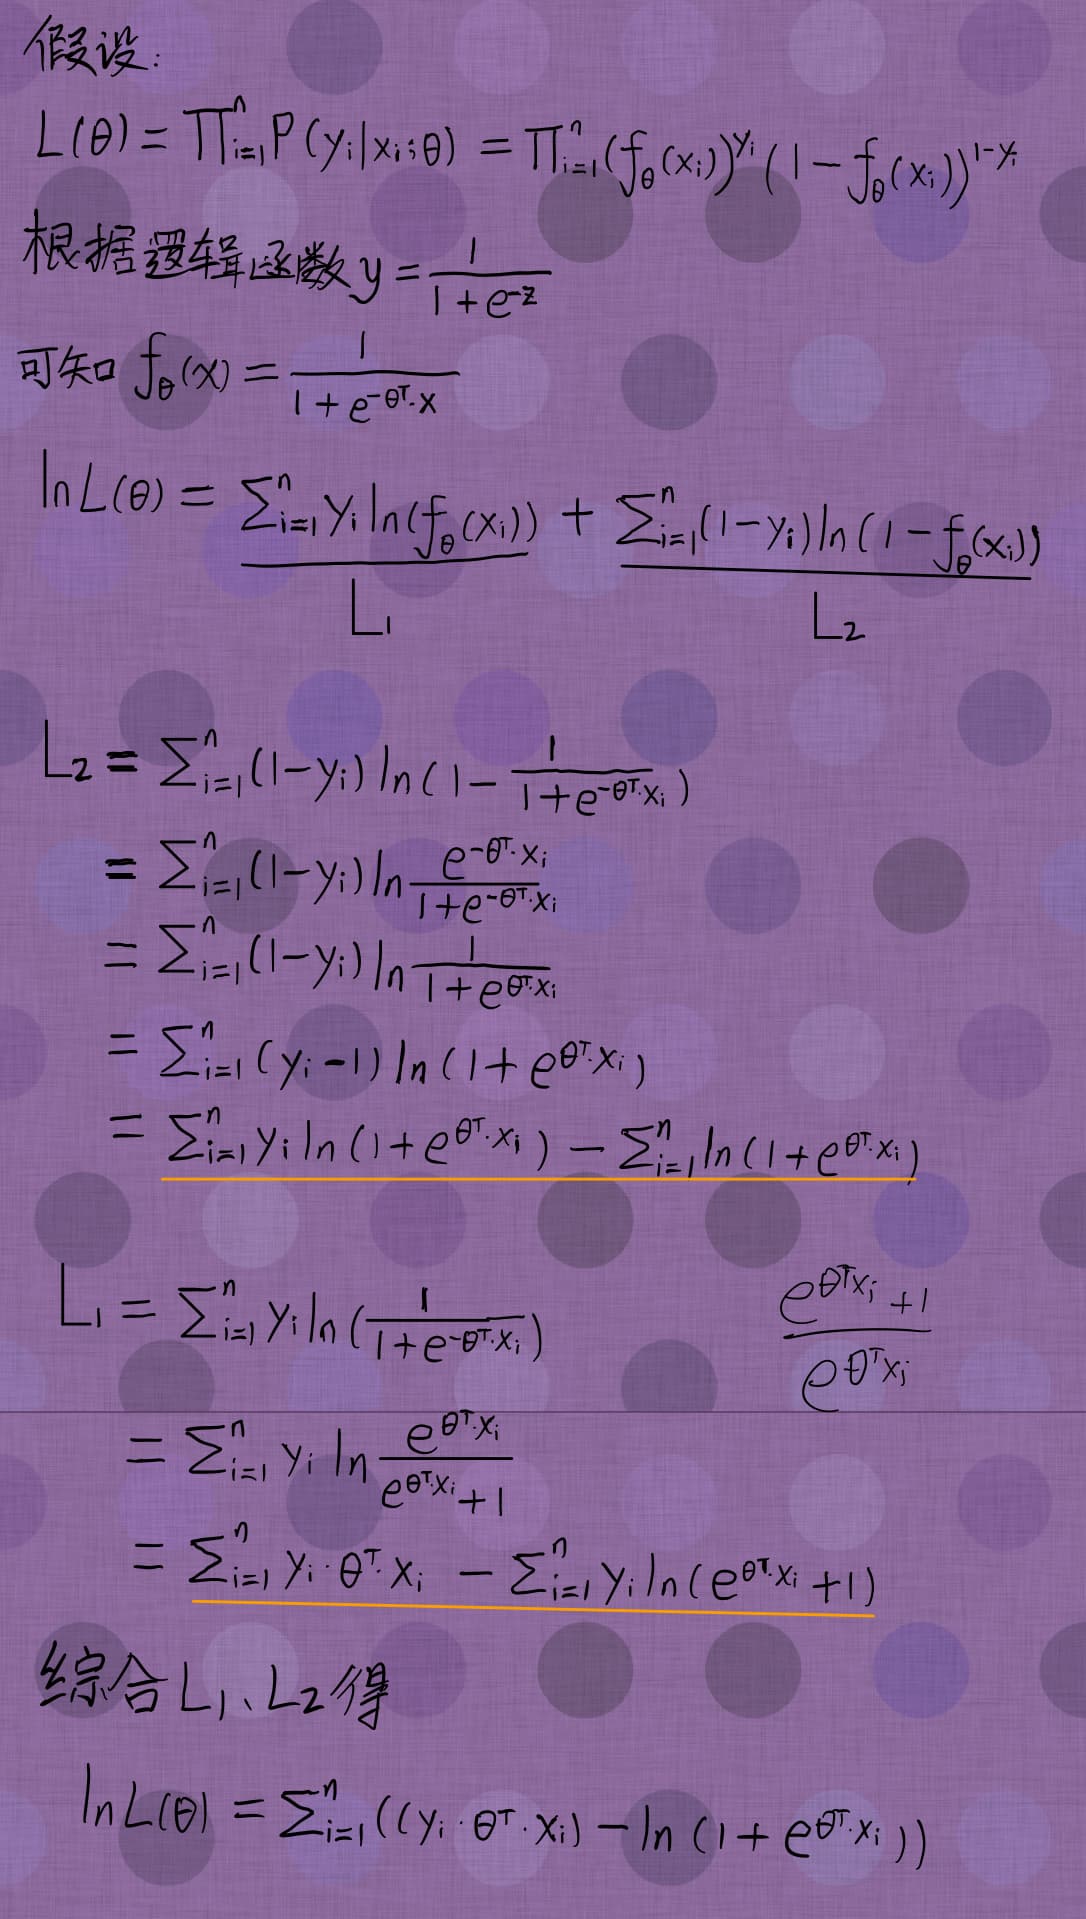 假设:
L(θ) = ∏ⁿᵢ₌₁ P(yᵢ|xᵢ;θ) = ∏ⁿᵢ₌₁ (f_θ(xᵢ))^{yᵢ} (1 - f_θ(xᵢ))^{1-yᵢ}
根据逻辑函数 y = \frac{1}{1+e^{-z}}
可知 f_θ(x) = \frac{1}{1+e^{-θ^T·x}}
ln L(θ) = ∑ⁿᵢ₌₁ yᵢ ln(f_θ(xᵢ)) + ∑ⁿᵢ₌₁ (1-yᵢ) ln(1 - f_θ(xᵢ))
L₁ L₂
L₂ = ∑ⁿᵢ₌₁ (1-yᵢ) ln(1 - \frac{1}{1+e^{-θ^T·xᵢ}})
= ∑ⁿᵢ₌₁ (1-yᵢ) ln \frac{e^{-θ^T·xᵢ}}{1+e^{-θ^T·xᵢ}}
= ∑ⁿᵢ₌₁ (1-yᵢ) ln \frac{1}{1+e^{θ^T·xᵢ}}
= ∑ⁿᵢ₌₁ (yᵢ-1) ln(1+e^{θ^T·xᵢ})
= ∑ⁿᵢ₌₁ yᵢ ln(1+e^{θ^T·xᵢ}) - ∑ⁿᵢ₌₁ ln(1+e^{θ^T·xᵢ})
L₁ = ∑ⁿᵢ₌₁ yᵢ ln(\frac{1}{1+e^{-θ^T·xᵢ}})
\frac{e^{θ^T xᵢ}+1}{e^{θ^T xᵢ}}
= ∑ⁿᵢ₌₁ yᵢ ln \frac{e^{θ^T·xᵢ}}{e^{θ^T·xᵢ}+1}
= ∑ⁿᵢ₌₁ yᵢ·θ^T·xᵢ - ∑ⁿᵢ₌₁ yᵢ ln(e^{θ^T·xᵢ}+1)
综合L₁、L₂得
ln L(θ) = ∑ⁿᵢ₌₁ ((yᵢ·θ^T·xᵢ) - ln(1+e^{θ^T·xᵢ}))